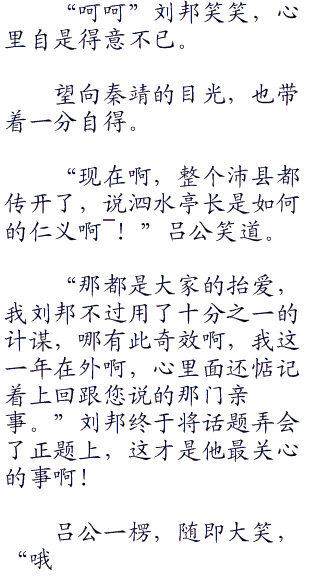 “呵呵”刘邦笑笑，心
里自是得意不已。
望向秦靖的目光，也带
着一分自得。
“现在啊，整个沛县都
传开了，说泗水亭长是如何
的仁义啊¯！”吕公笑道。
“那都是大家的抬爱，
我刘邦不过用了十分之一的
计谋，哪有此奇效啊，我这
一年在外啊，心里面还惦记
着上回跟您说的那门亲
事。”刘邦终于将话题弄会
了正题上，这才是他最关心
的事啊！
吕公一楞，随即大笑，
“哦